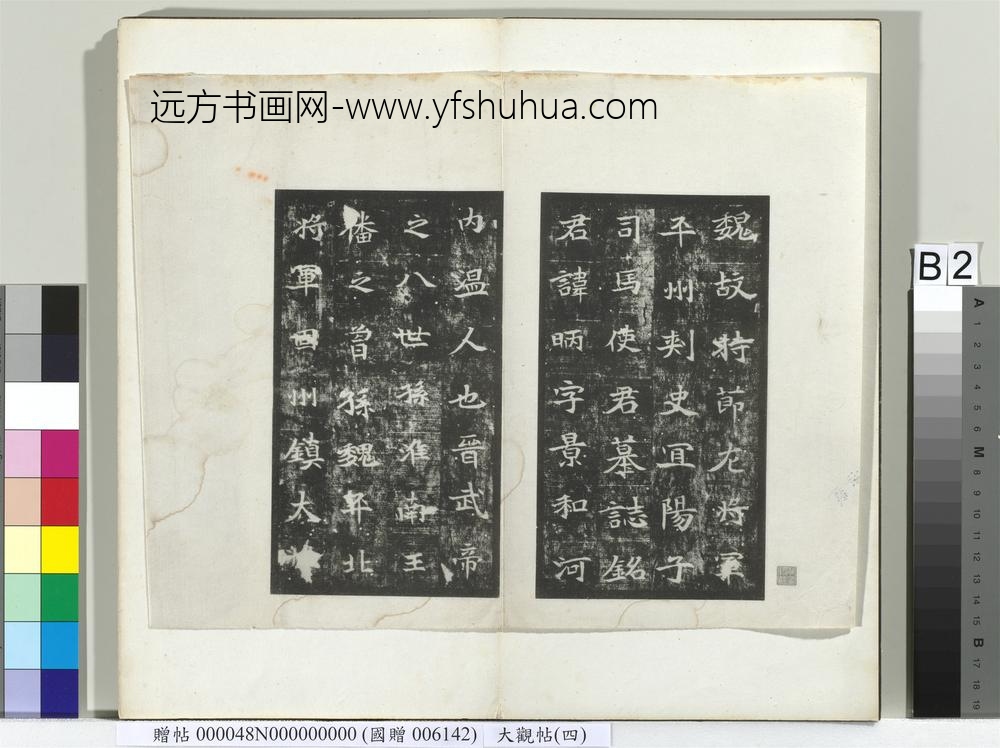 远方书画网-www.yfshuhua.com
魏故持節左將軍
平州刺史宜陽子
司馬使君墓誌銘
君諱昞字景和河
内温人也晉武帝
之八世孫淮南王
播之曾孫魏平北
將軍固州鎮大
B 2
A
1
2
3
4
5
6
M
8
9
10
11
12
13
14
15
B
17
18
19
贈帖 000048N000000000 (國贈 006142) 大觀帖(四)